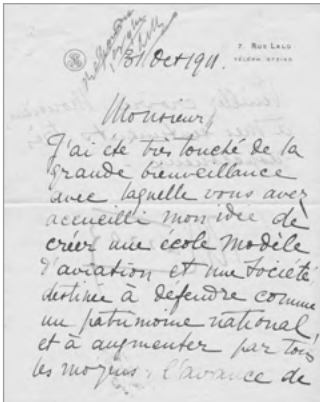 7. RUE LALO
TÉLÉPH. 572.50
31 Oct 1911.
Monsieur,
J'ai été très touché de la
grande bienveillance
avec laquelle vous avez
accueilli mon idée de
créer une école modèle
d'aviation et une Société
destinée à défendre comme
un patrimoine national
et à augmenter par tous
les moyens, l'avance de